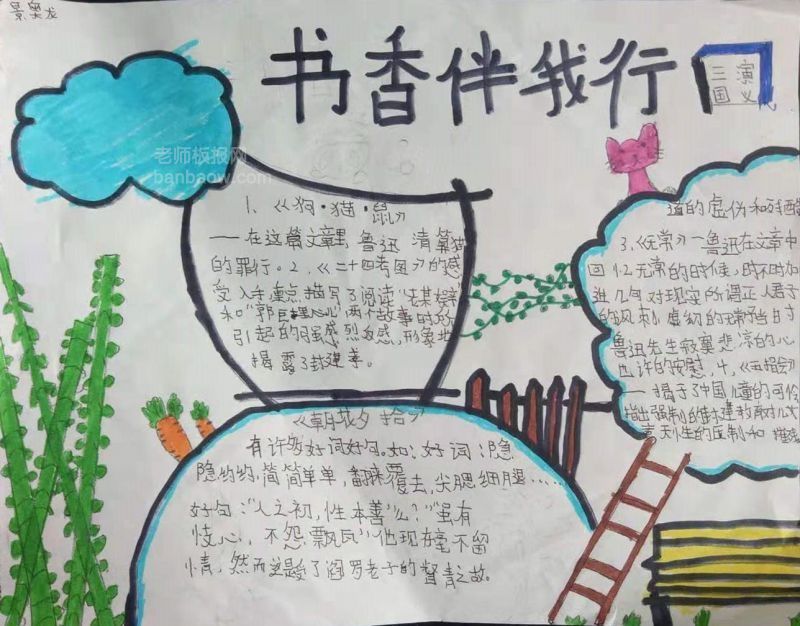 景奥龙
书香伴我行
三演
国义
老师板报网
banbaow.com
1、《狗·猫·鼠》
——在这篇文章里,鲁迅清算猫
的罪行。2、《二十四孝图》的感
受入手,重点描写了阅读"老莱娱亲"
和"郭巨埋儿"两个故事时所
引起的强烈反感,形象地
揭露了封建孝。
道的虚伪和残酷
3、《无常》——鲁迅在文章中
回忆无常的时候,时不时加
进几句对现实所谓正人君子
的风刺,虚幻的无常
鲁迅先生寂寞悲凉的心
也许的安慰,4、《五猖会》
——揭于了中国儿童的可怜
指出强制的封建教育对儿
童天生的压制和摧残
《朝花夕拾》
有许多好词好句。如:好词:隐
隐约约,简简单单,翻来覆去,尖腮细腿……
好句:"人之初,性本善"么?"虽有
忮心,不怨飘瓦"他现在毫不留
情,然而
了阎罗老子的督责之故。